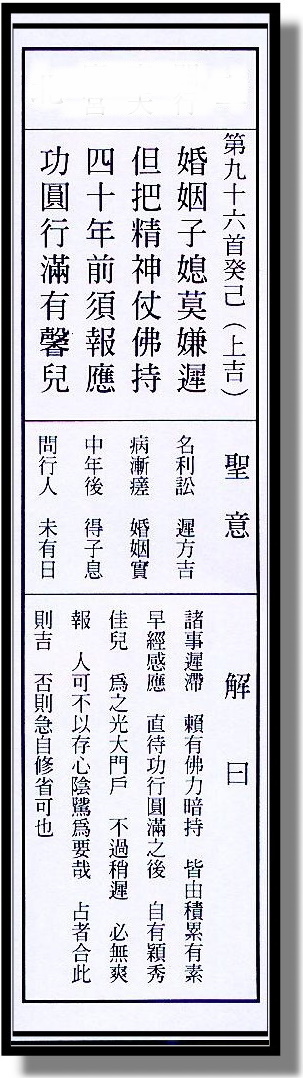 第九十六首癸己（上吉）
婚姻子媳莫嫌遲
但把精神仗佛持
四十年前須報應
功圓行滿有馨兒
聖意
名利訟　遲方吉
病漸瘥　婚姻實
中年後　得子息
問行人　未有日
解曰
諸事遲滯　賴有佛力暗持　皆由積累有素
早經感應　直待功行圓滿之後　自有穎秀
佳兒　爲之光大門戶　不過稍遲　必無爽
報　人可不以存心陰騭爲要哉　占者合此
則吉　否則急自修省可也